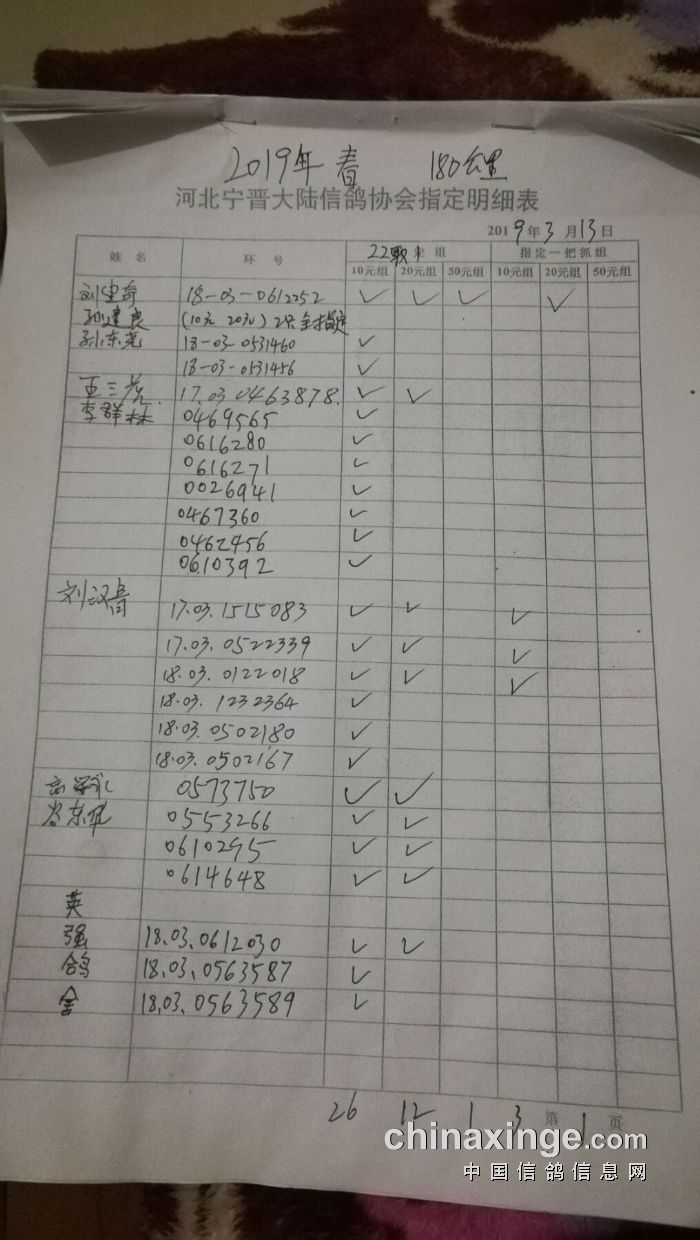 2019年 春 180公里
河北宁晋大陆信鸽协会指定明细表
2019年3月13日
姓 名 环 号 定 组 指定一把抓组
10元组 20元组 50元组 10元组 20元组 50元组
刘建奇 18-03-0612252 ✓ ✓ ✓ ✓
孙建良 (10元 20元) 2只全指定
孙东尧 18-03-0531460 ✓
18-03-0531456 ✓
王三 17.03.0463878. ✓ ✓
李群林 0469565 ✓
0616280 ✓
0616271 ✓
0026941 ✓
0467360 ✓
0462456 ✓
0610392 ✓
刘汉 17.03.1515083 ✓ ✓ ✓
17.03.0522339 ✓ ✓ ✓
18.03.0122018 ✓ ✓ ✓
18.03.1232364 ✓
18.03.0502180 ✓
18.03.0502167 ✓
0573750 ✓ ✓
0553266 ✓ ✓
0610295 ✓ ✓
0614648 ✓ ✓
英
强 18.03.0612030 ✓ ✓
鸽 18.03.0563587 ✓
舍 18.03.0563589 ✓
26 12 1 3 第 1 页
chinaxinge.com
中国信鸽信息网